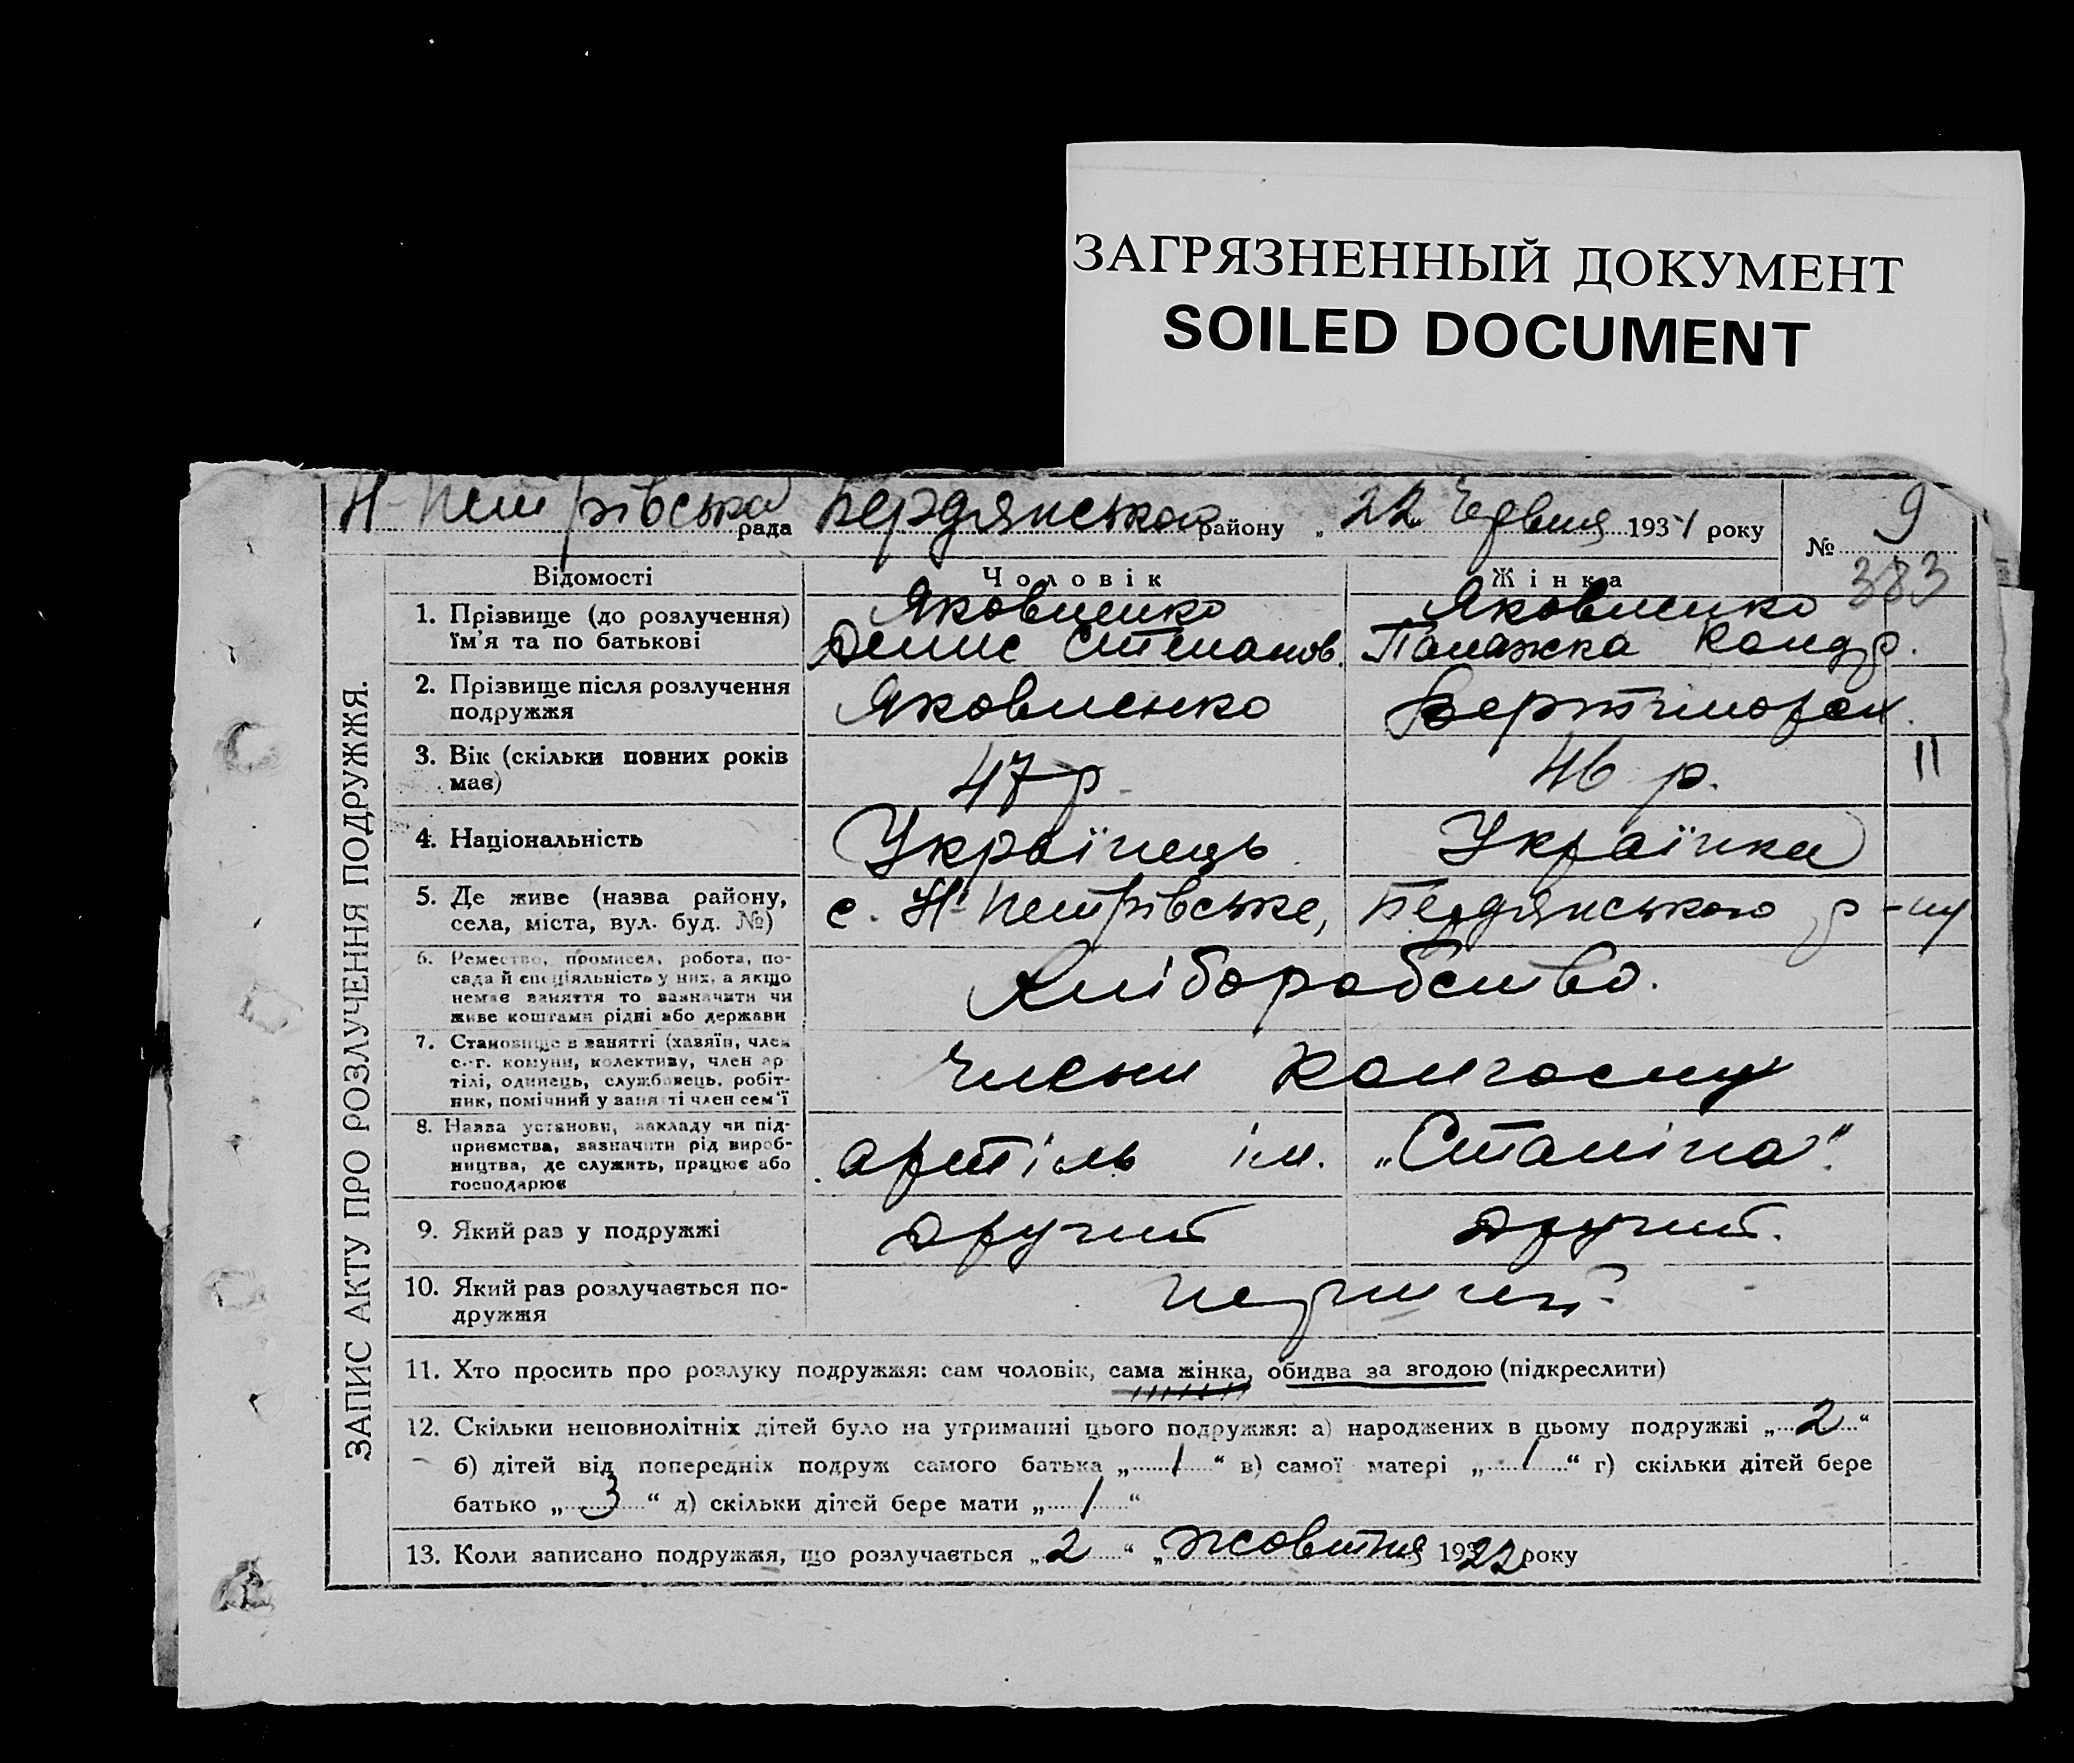 ЗАГРЯЗНЕННЫЙ ДОКУМЕНТ
SOILED DOCUMENT
Н-Петрівська рада Бердянського району „ 22 Червня 1934 року № 9
383
ЗАПИС АКТУ ПРО РОЗЛУЧЕННЯ ПОДРУЖЖЯ.
Відомості Чоловік Жінка
1. Прізвище (до розлучення) їм'я та по батькові
Яковленко Денис Степанов.
Яковленко Палажка Кондр.
2. Прізвище після розлучення подружжя
Яковленко
3. Вік (скільки повних років має)
47 р 46 р. 11
4. Національність
Українець Українка
5. Де живе (назва району, села, міста, вул. буд. №)
с. Н-Петрівське, Бердянського р-ну
6. Ремество, промисел, робота, по-
сада й спеціяльність у них, а якщо
немає заняття то зазначити чи
живе коштами рідні або держави
Хліборобство.
7. Становище в занятті (хазяїн, член
с.-г. комуни, колективу, член ар
тілі, одинець, службовець, робіт-
ник, помічний у занятті член сем'ї
Члени колгоспу
8. Назва установи, закладу чи під-
приємства, зазначити рід вироб-
ництва, де служить, працює або
господарює
артіль ім. „Сталіна".
9. Який раз у подружжі
другий другий.
10. Який раз розлучається по-
дружжя
перший
11. Хто просить про розлуку подружжя: сам чоловік, сама жінка, обидва за згодою (підкреслити)
12. Скільки неповнолітніх дітей було на утриманні цього подружжя: а) народжених в цьому подружжі „ 2 “
б) дітей від попередніх подруж самого батька „ 1 “ в) самої матері „ 1 “ г) скільки дітей бере
батько „ 3 “ д) скільки дітей бере мати „ 1 “
13. Коли записано подружжя, що розлучається „ 2 “ „ жовтня 1922 року